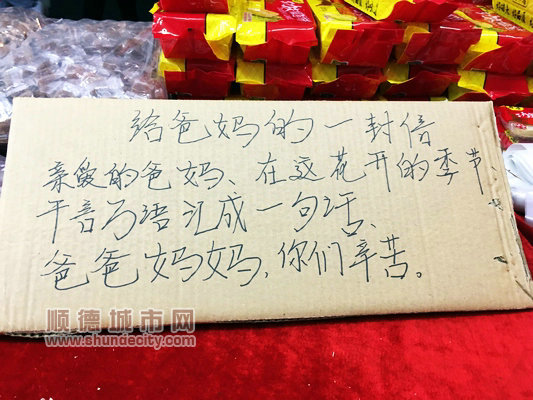 给爸妈的一封信
亲爱的爸妈、在这花开的季节、
千音万语汇成一句话、
爸爸妈妈,你们辛苦。
顺德城市网
www.shundecity.com